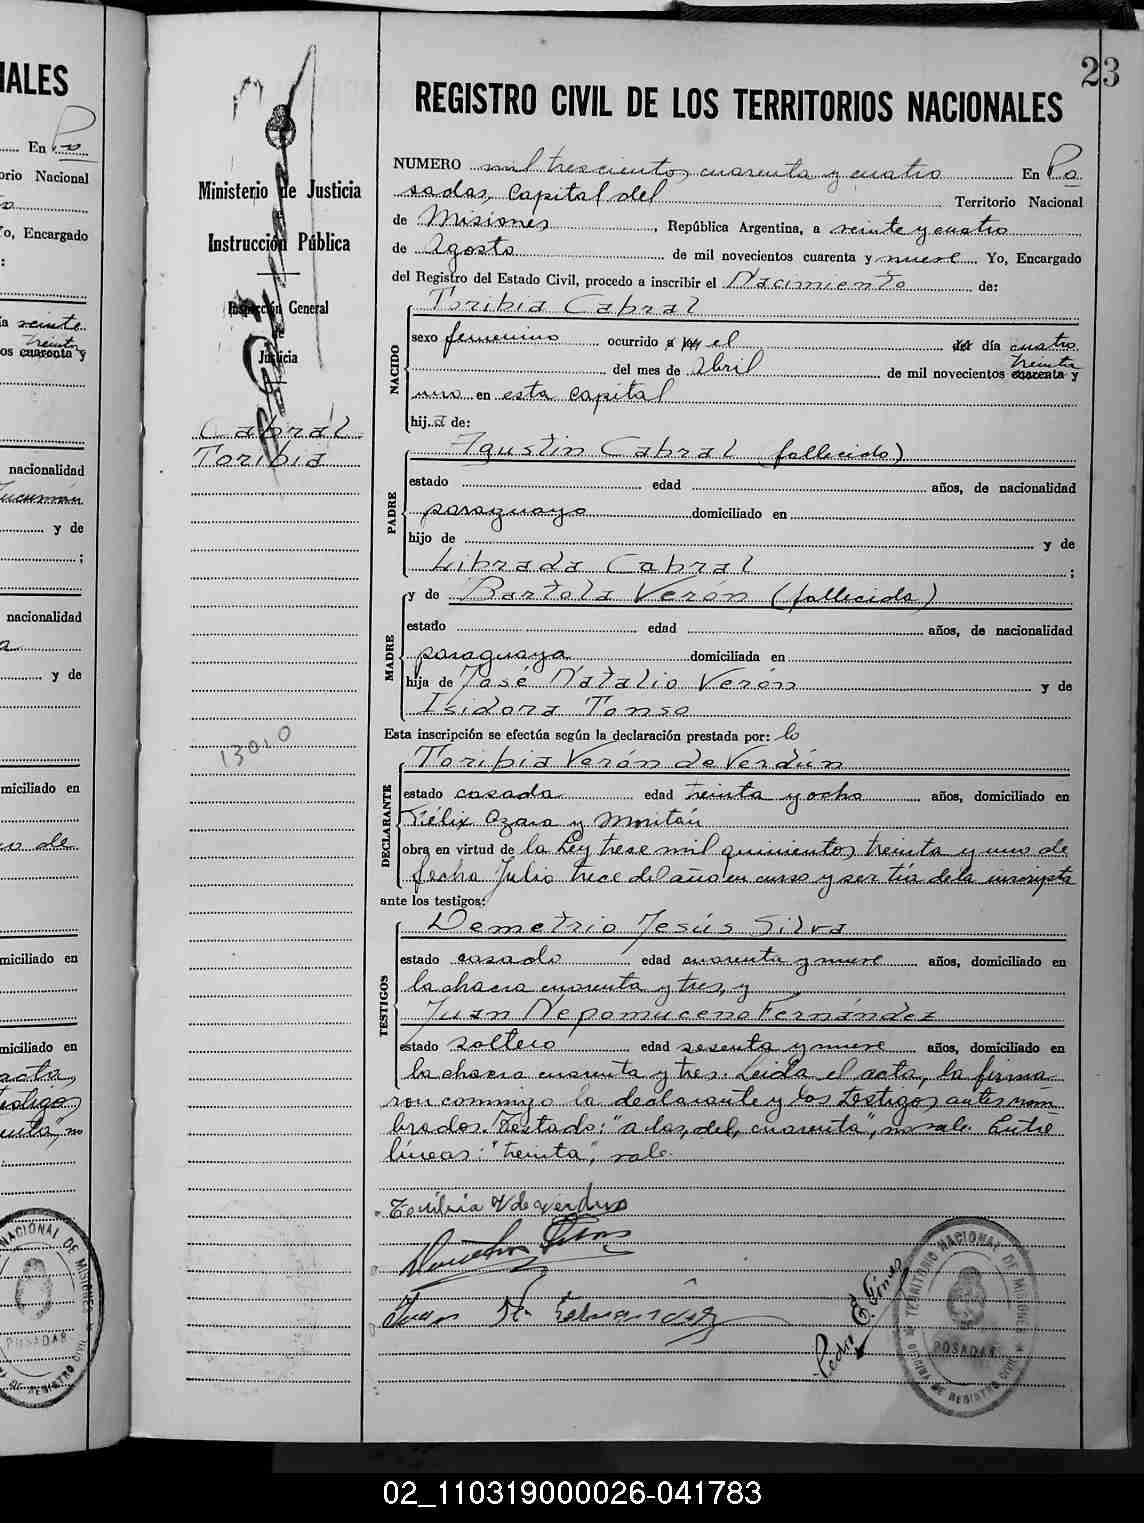 23
REGISTRO CIVIL DE LOS TERRITORIOS NACIONALES
Ministerio de Justicia
Instrucción Pública
Inspección General
de
Justicia
Cabral
Toribia
13010
NUMERO mil trescientos cuarenta y cuatro En Po
sadas, Capital del Territorio Nacional
de Misiones, República Argentina, a veinte y cuatro
de Agosto de mil novecientos cuarenta y nueve Yo, Encargado
del Registro del Estado Civil, procedo a inscribir el Nacimiento de:
NACIDO
Toribia Cabral
sexo femenino ocurrido a las el del día cuatro
del mes de Abril de mil novecientos cuarenta treinta y
uno en esta capital
hija de:
PADRE
Agustin Cabral (fallecido)
estado edad años, de nacionalidad
paraguayo domiciliado en
hijo de y de
Librada Cabral ;
MADRE
y de Bartola Verón (fallecida)
estado edad años, de nacionalidad
paraguaya domiciliada en
hija de José Natalio Verón y de
Isidora Tonso
Esta inscripción se efectúa según la declaración prestada por: lo
DECLARANTE
Toribia Verón de Verdún
estado casada edad treinta y ocho años, domiciliado en
Félix Azara y Moritán
obra en virtud de la Ley trece mil quinientos treinta y uno de
fecha Julio trece del año en curso y ser tía de la inscripta
ante los testigos:
TESTIGOS
Demetrio Jesús Silva
estado casado edad cuarenta y nueve años, domiciliado en
la chacra cuarenta y tres, y
Juan Nepomuceno Fernández
estado soltero edad sesenta y nueve años, domiciliado en
la chacra cuarenta y tres. Leida el acta, la firma
ron conmigo la declarante y los testigos antes nom
brados. Testado: "a las, del, cuarenta", no vale. Entre
líneas: "treinta", vale.
Toribia V de Verdun
Juan N. Fernández
Pedro E. Giménez
TERRITORIO NACIONAL DE MISIONES
POSADAS
OFICINA DE REGISTRO CIVIL
IALES
En Po
orio Nacional
Yo, Encargado
a veinte
treinta
os cuarenta y
nacionalidad
Tucumán
y de
;
nacionalidad
y de
miciliado en
miciliado en
miciliado en
acta,
testigos
no
NACIONAL DE MISIONES
POSADAS
DE REGISTRO CIVIL
02_110319000026-041783